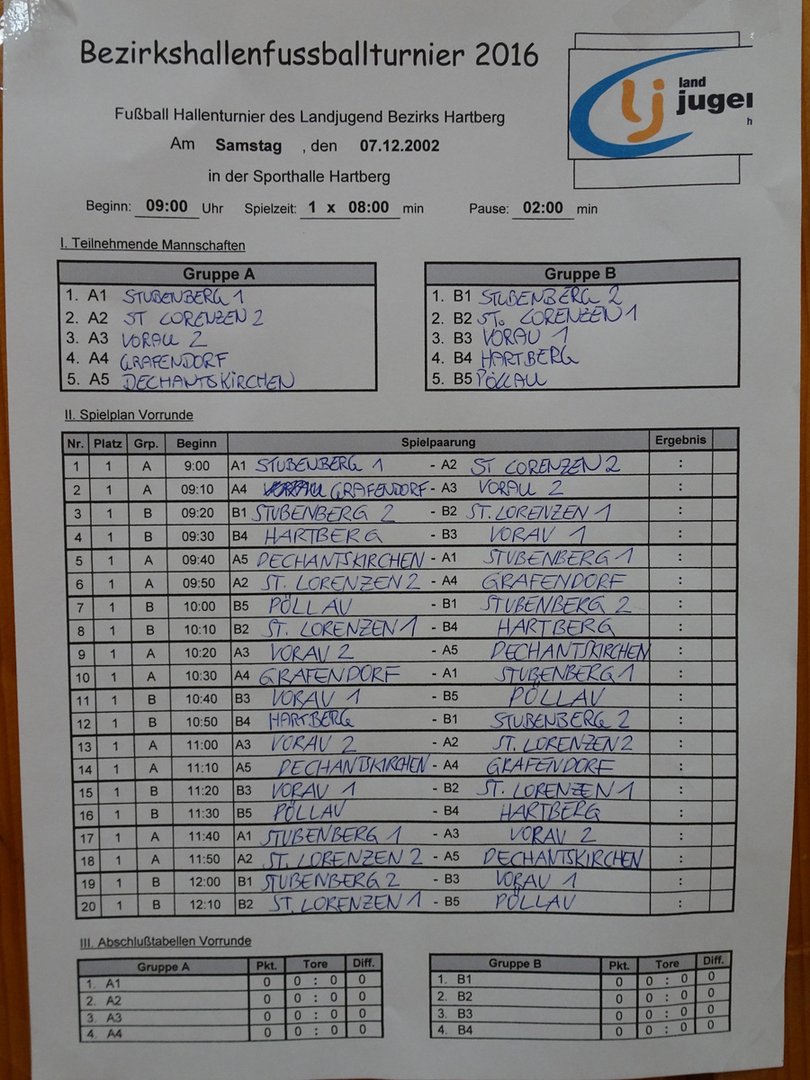 Bezirkshallenfussballturnier 2016
land
jugen
h
Fußball Hallenturnier des Landjugend Bezirks Hartberg
Am Samstag , den 07.12.2002
in der Sporthalle Hartberg
Beginn: 09:00 Uhr Spielzeit: 1 x 08:00 min Pause: 02:00 min
I. Teilnehmende Mannschaften
Gruppe A
1. A1 STUBENBERG 1
2. A2 ST LORENZEN 2
3. A3 VORAU 2
4. A4 GRAFENDORF
5. A5 DECHANTSKIRCHEN
Gruppe B
1. B1 STUBENBERG 2
2. B2 ST. LORENZEN 1
3. B3 VORAU 1
4. B4 HARTBERG
5. B5 PÖLLAU
II. Spielplan Vorrunde
Nr. Platz Grp. Beginn Spielpaarung Ergebnis
1 1 A 9:00 A1 STUBENBERG 1 - A2 ST LORENZEN 2 :
2 1 A 09:10 A4 GRAFENDORF - A3 VORAU 2 :
3 1 B 09:20 B1 STUBENBERG 2 - B2 ST. LORENZEN 1 :
4 1 B 09:30 B4 HARTBERG - B3 VORAU 1 :
5 1 A 09:40 A5 DECHANTSKIRCHEN - A1 STUBENBERG 1 :
6 1 A 09:50 A2 ST. LORENZEN 2 - A4 GRAFENDORF :
7 1 B 10:00 B5 PÖLLAU - B1 STUBENBERG 2 :
8 1 B 10:10 B2 ST. LORENZEN 1 - B4 HARTBERG :
9 1 A 10:20 A3 VORAU 2 - A5 DECHANTSKIRCHEN :
10 1 A 10:30 A4 GRAFENDORF - A1 STUBENBERG 1 :
11 1 B 10:40 B3 VORAU 1 - B5 PÖLLAU :
12 1 B 10:50 B4 HARTBERG - B1 STUBENBERG 2 :
13 1 A 11:00 A3 VORAU 2 - A2 ST. LORENZEN 2 :
14 1 A 11:10 A5 DECHANTSKIRCHEN - A4 GRAFENDORF :
15 1 B 11:20 B3 VORAU 1 - B2 ST. LORENZEN 1 :
16 1 B 11:30 B5 PÖLLAU - B4 HARTBERG :
17 1 A 11:40 A1 STUBENBERG 1 - A3 VORAU 2 :
18 1 A 11:50 A2 ST. LORENZEN 2 - A5 DECHANTSKIRCHEN :
19 1 B 12:00 B1 STUBENBERG 2 - B3 VORAU 1 :
20 1 B 12:10 B2 ST. LORENZEN 1 - B5 PÖLLAU :
III. Abschlußtabellen Vorrunde
Gruppe A Pkt. Tore Diff.
1. A1 0 0 : 0 0
2. A2 0 0 : 0 0
3. A3 0 0 : 0 0
4. A4 0 0 : 0 0
Gruppe B Pkt. Tore Diff.
1. B1 0 0 : 0 0
2. B2 0 0 : 0 0
3. B3 0 0 : 0 0
4. B4 0 0 : 0 0